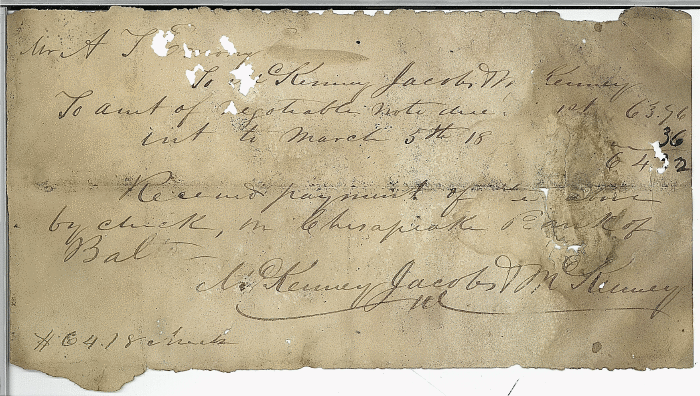 Mr A T Emory
To McKenney Jacobs & McKenney
To amt of negotiable note due 1st 63.96
int to March 5th 18 36
64 32
Received payment of the above
by check, on Chesapeake Bank of
Balt
McKenney Jacobs & McKenney
#64.18 check